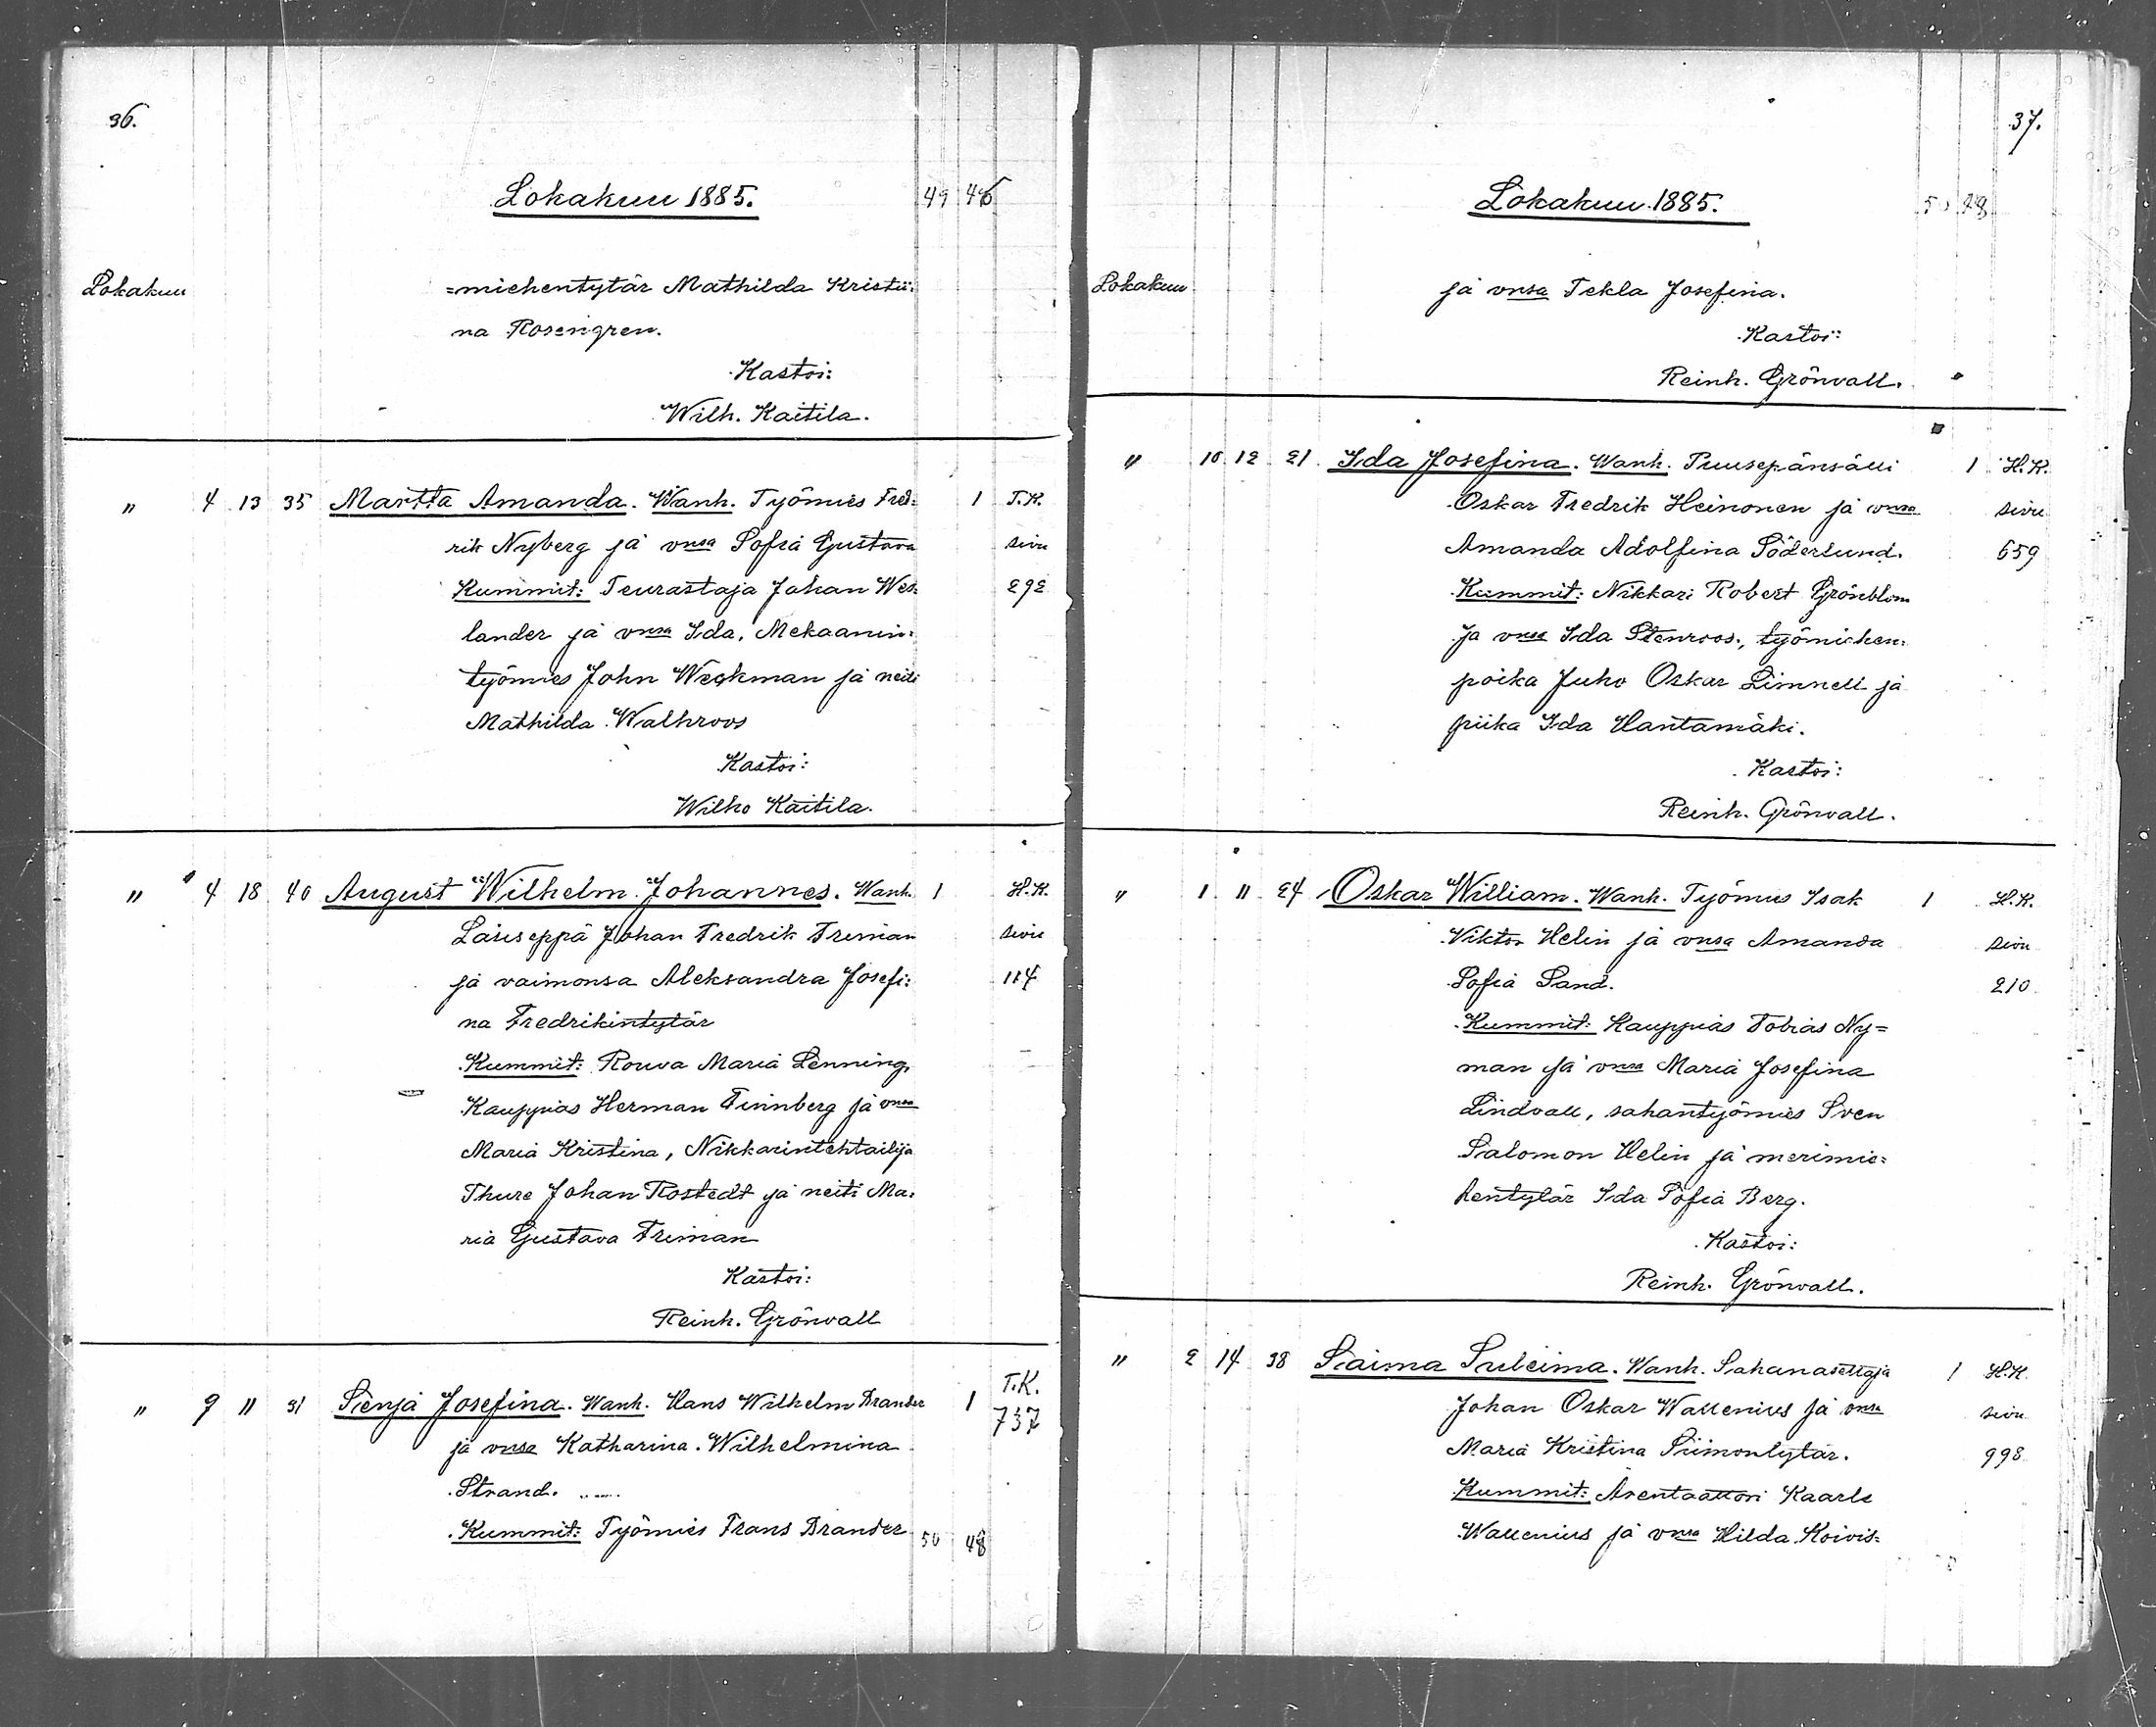 36.
Lokakuu 1885. 49 46
Lokakuu =miehentytär Mathilda Kristii=
na Rosengren.
Kastoi:
Wilh. Kaitila.
" 4 13 35 Martta Amanda. Wanh. Työmies Fred= 1 T.K.
rik Nyberg ja vnsa Sofia Gustava sivu
Kummit: Teurastaja Johan Wes= 292
lander ja vnsa Ida, Mekaanin=
työmies John Weckman ja neiti
Mathilda Walhroos
Kastoi:
Wilho Kaitila.
" 4 18 40 August Wilhelm Johannes. Wanh. 1 H.K.
Lasiseppä Johan Fredrik Friman sivu
ja vaimonsa Aleksandra Josefi= 114
na Fredrikintytär
Kummit: Rouva Maria Lenning,
Kauppias Herman Finnberg ja vnsa
Maria Kristina, Nikkarintehtailija
Thure Johan Rostedt ja neiti Ma=
ria Gustava Friman
Kastoi:
Reinh. Grönvall
" 9 11 31 Senja Josefina. Wanh. Hans Wilhelm Brander 1 T.K. 737
ja vnsa Katharina Wilhelmina
Strand.
Kummit: Työmies Frans Brander 50 48
37.
Lokakuu 1885. 50 48
Lokakuu ja vnsa Tekla Josefina.
Kastoi:
Reinh. Grönvall.
" 10 12 21 Ida Josefina. Wanh. Puusepänsälli 1 H.K.
Oskar Fredrik Heinonen ja vnsa sivu
Amanda Adolfina Söderlund. 659
Kummit: Nikkari Robert Grönblom
ja vnsa Ida Stenroos, työmiehen=
poika Juho Oskar Limnell ja
piika Ida Hantamäki.
Kastoi:
Reinh. Grönvall.
" 1 11 24 Oskar William. Wanh. Työmies Isak 1 H.K.
Viktor Helin ja vnsa Amanda sivu
Sofia Sand. 210
Kummit: Kauppias Tobias Ny=
man ja vnsa Maria Josefina
Lindvall, sahantyömies Sven
Salomon Helin ja merimie=
hentytär Ida Sofia Berg.
Kastoi:
Reinh. Grönvall.
" 2 14 38 Saima Suleima. Wanh. Sahanasettaja 1 H.K.
Johan Oskar Wallenius ja vnsa sivu
Maria Kristina Siimontytär. 998
Kummit: Arentaattori Kaarle
Wallenius ja vnsa Hilda Koivis=